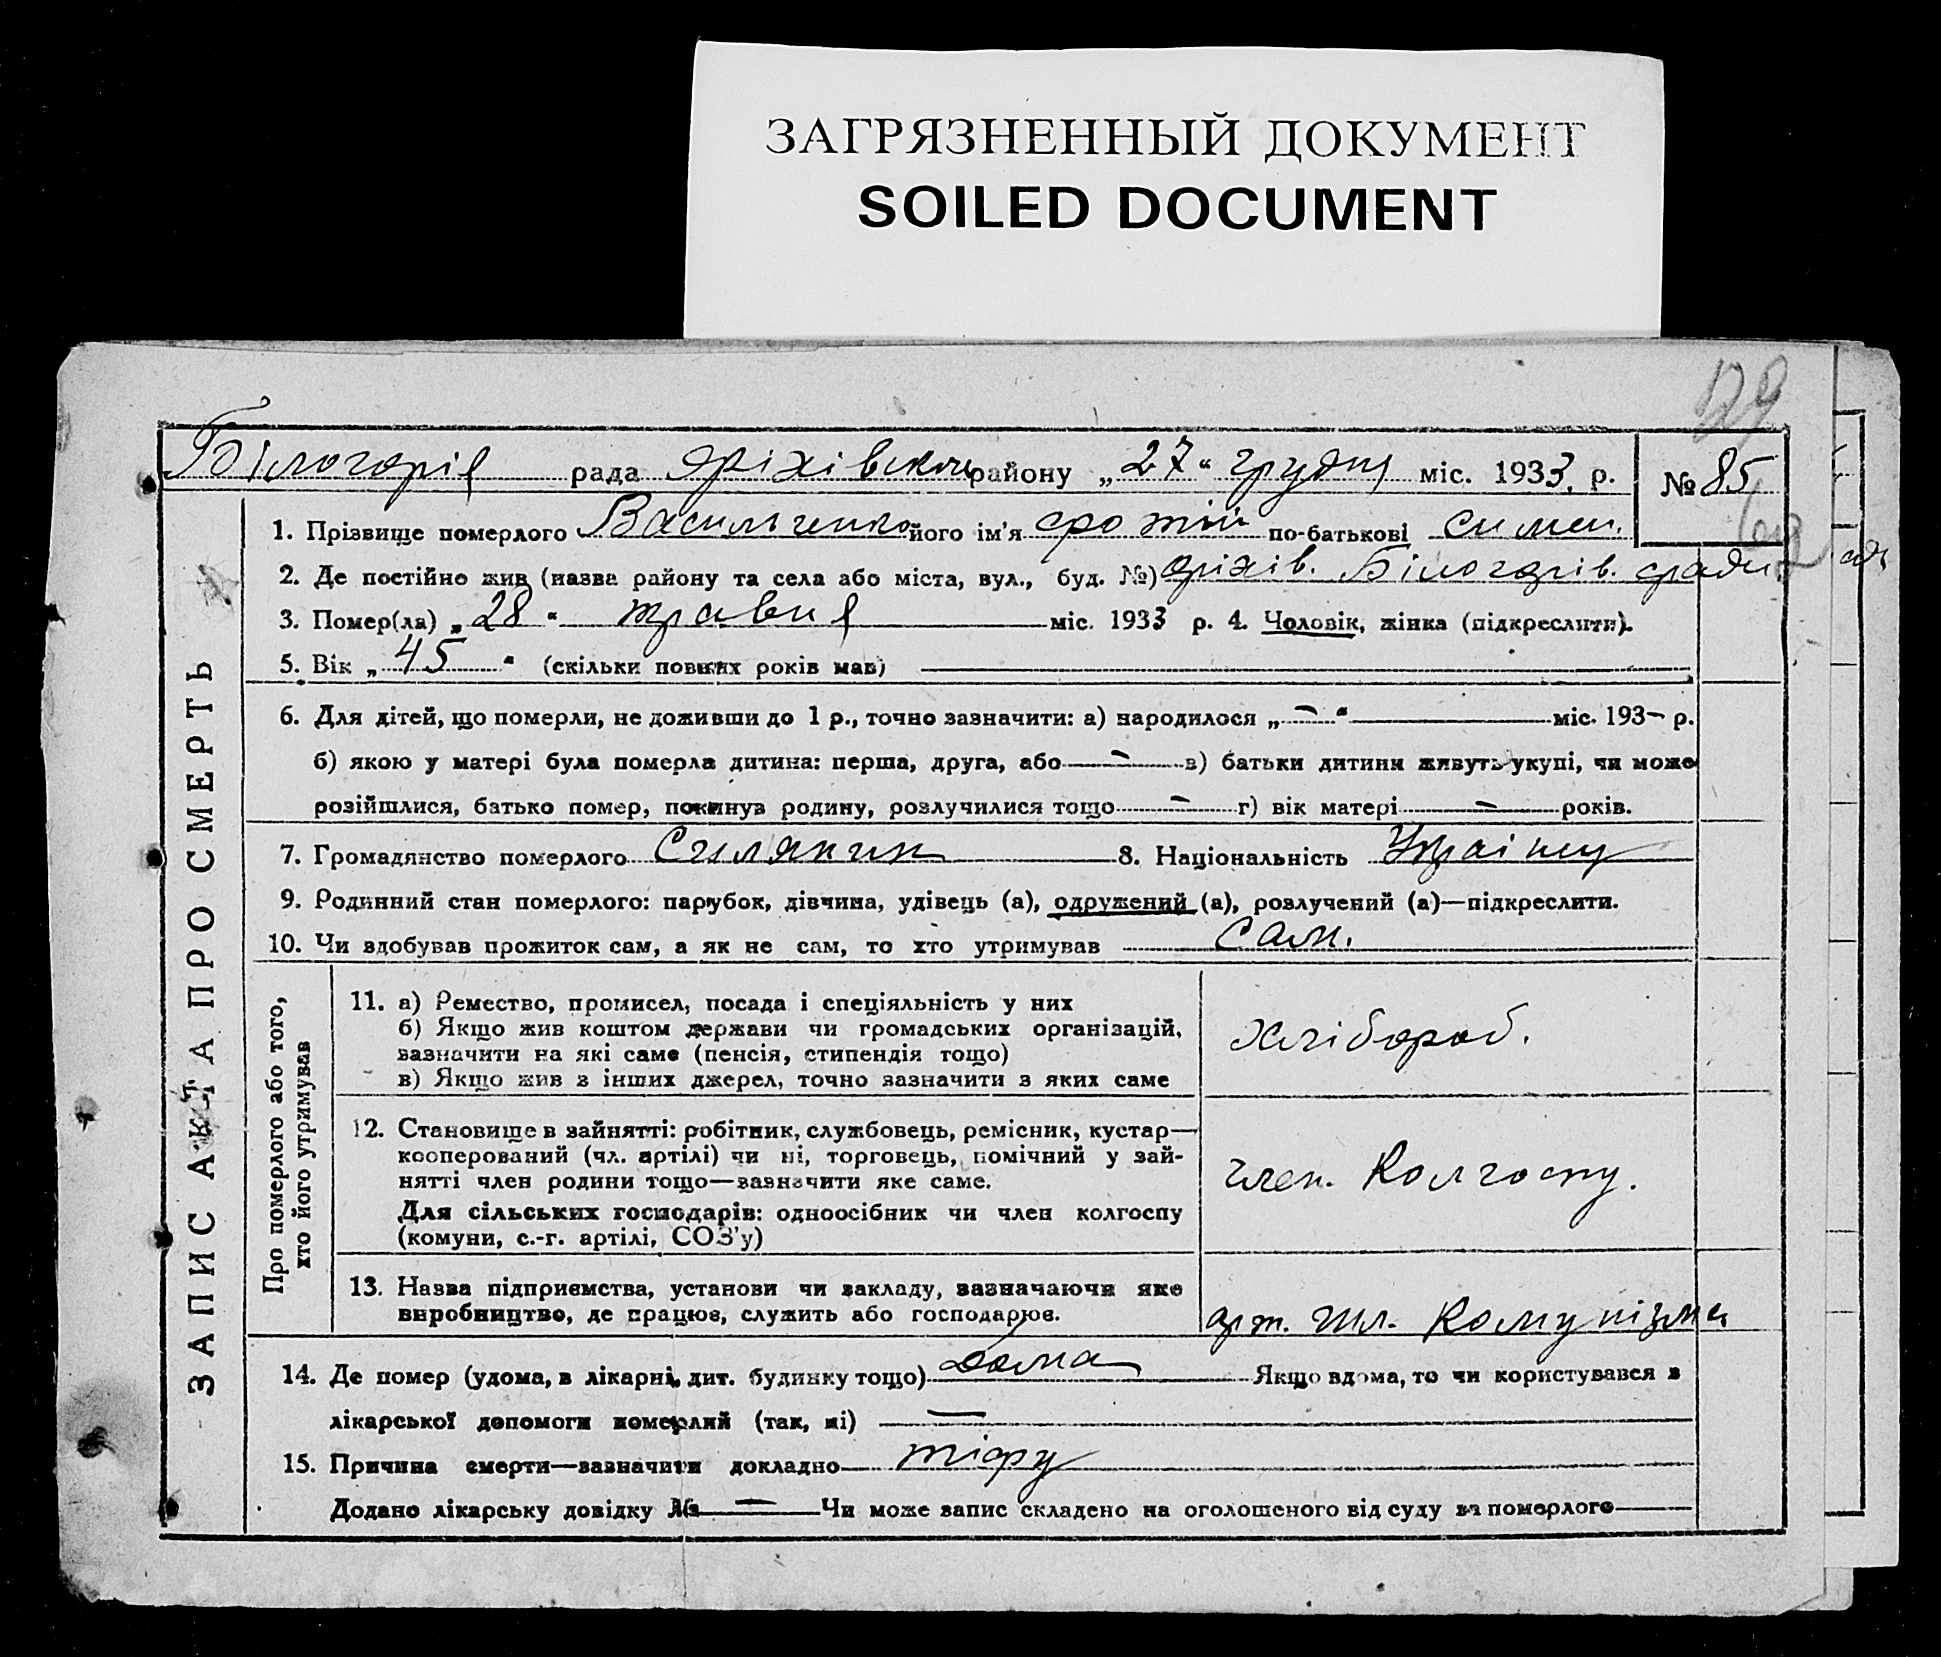 ЗАГРЯЗНЕННЫЙ ДОКУМЕНТ
SOILED DOCUMENT
129
рада оріхівська району „27“ грудня міс. 1933. р. № 85
ЗАПИС АКТА ПРО СМЕРТЬ
1. Прізвище померлого Васильченко його ім'я по-батькові Симен.
2. Де постійно жив (назва району та села або міста, вул., буд. №) оріхів. Білогорів. сради.
3. Помер(ла) „28“ травня міс. 1933 р. 4. Чоловік, жінка (підкреслити).
5. Вік „45“ (скільки повних років мав)
6. Для дітей, що померли, не доживши до 1 р., точно зазначити: а) народилося „—“ міс. 193— р.
б) якою у матері була померла дитина: перша, друга, або — в) батьки дитини живуть укупі, чи може
розійшлися, батько помер, покинув родину, розлучилися тощо — г) вік матері — років.
7. Громадянство померлого Силянин 8. Національність Украінец
9. Родинний стан померлого: парубок, дівчина, удівець (а), одружений (а), розлучений (а)—підкреслити.
10. Чи здобував прожиток сам, а як не сам, то хто утримував Сам.
Про померлого або того,
хто його утримував
11. а) Ремество, промисел, посада і спеціяльність у них
б) Якщо жив коштом держави чи громадських організацій,
зазначити на які саме (пенсія, стипендія тощо)
в) Якщо жив з інших джерел, точно зазначити з яких саме
Хлібороб.
12. Становище в зайнятті: робітник, службовець, ремісник, кустар—
кооперований (чл. артілі) чи ні, торговець, помічний у зай-
нятті член родини тощо—зазначити яке саме.
Для сільських господарів: одноосібник чи член колгоспу
(комуни, с.-г. артілі, СОЗ'у)
член. Колгоспу.
13. Назва підприємства, установи чи закладу, зазначаючи яке
виробництво, де працює, служить або господарює.
арт. Шл. Комунізма
14. Де помер (удома, в лікарні, дит. будинку тощо) дома Якщо вдома, то чи користувався з
лікарської допомоги померлий (так, ні) —
15. Причина смерти—зазначити докладно тіфу
Додано лікарську довідку № — Чи може запис складено на оголошеного від суду за померлого